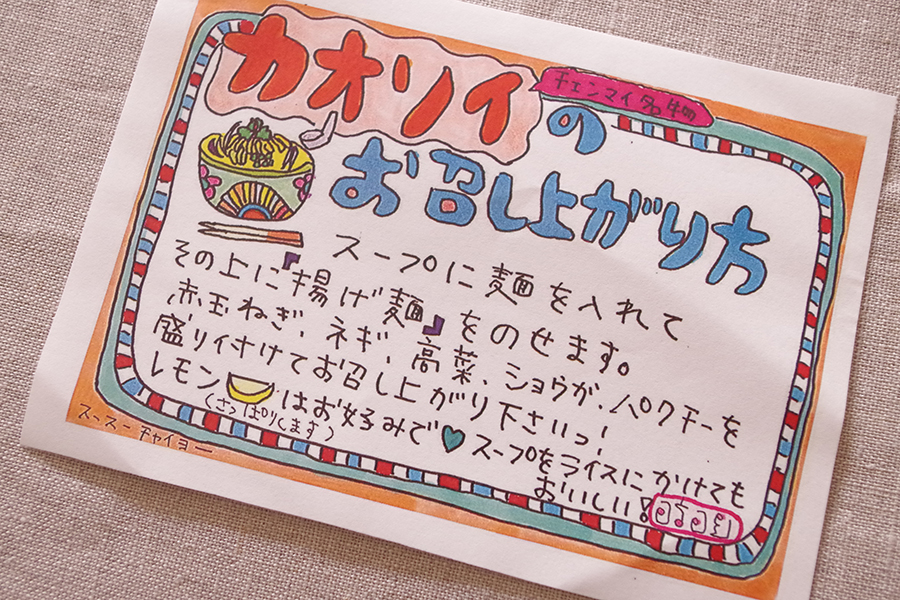 カオソイの
チェンマイ名物
お召し上がり方
スープに麺を入れて
その上に『揚げ麺』をのせます。
赤玉ねぎ、ネギ、高菜、ショウガ、パクチーを
盛り付けてお召し上がり下さいっ!
レモンはお好みで♥スープをライスにかけても
(さっぱりします)
おいしい!
スースーチャイヨー